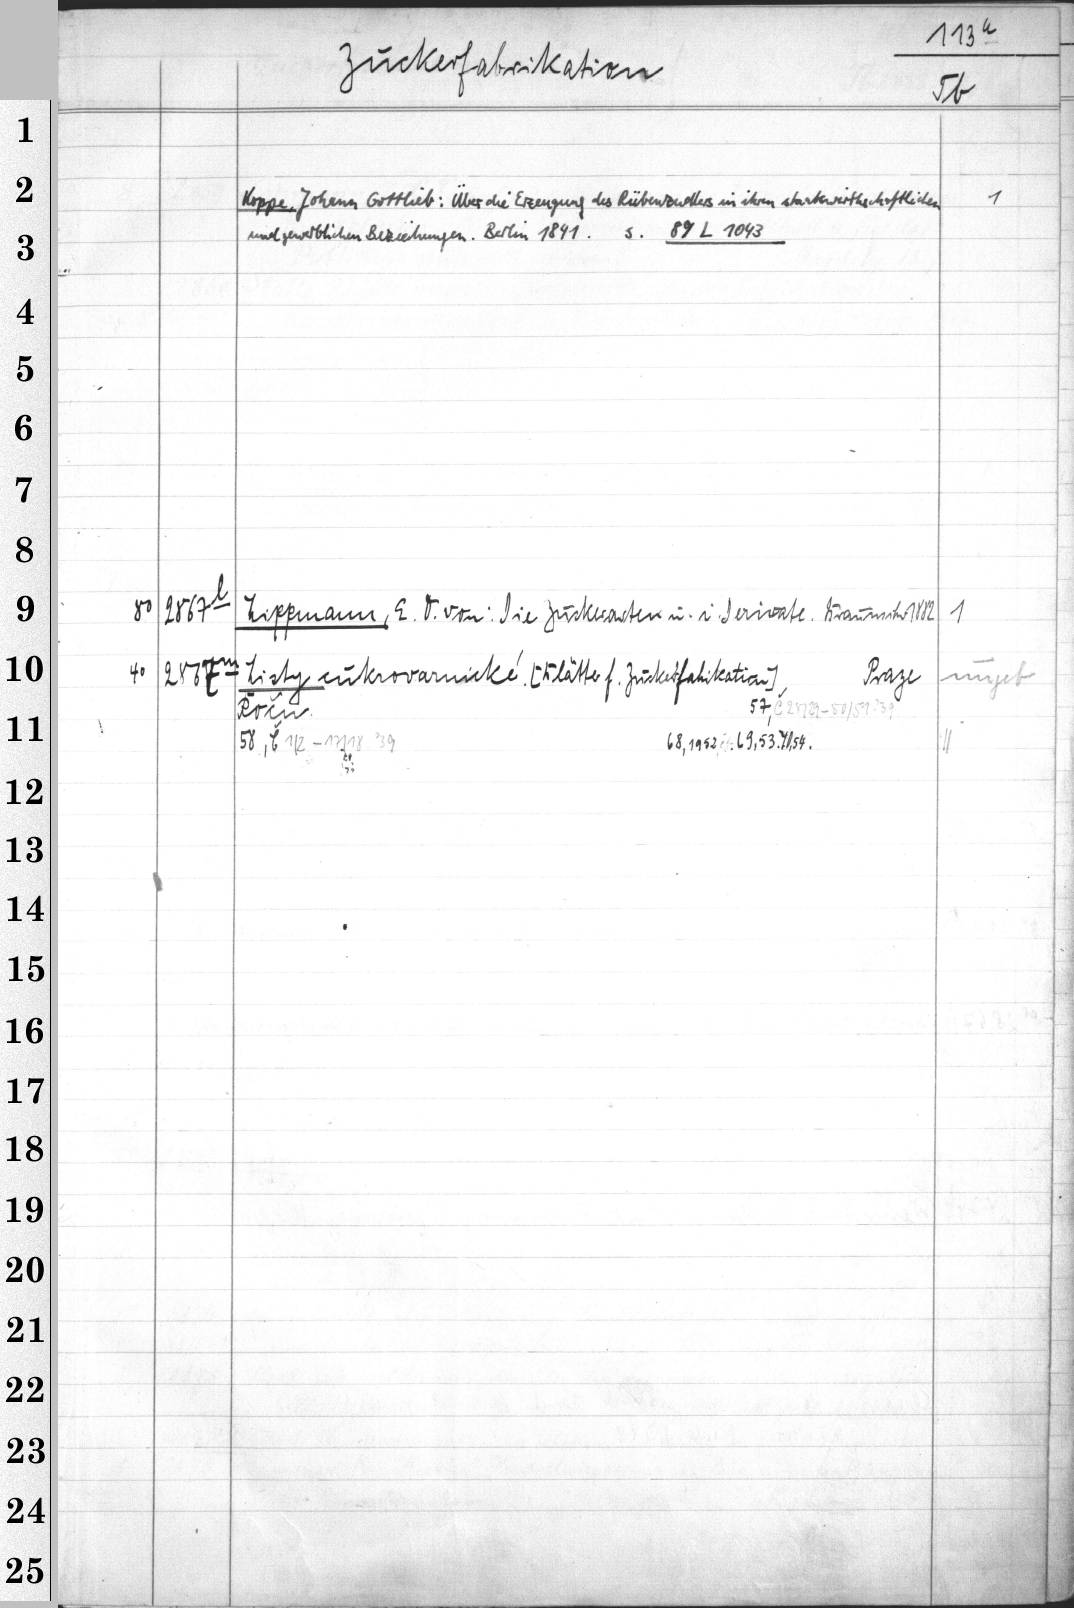 113a
Zuckerfabrikation
Tb
1
2
Koppe, Johann Gottlieb: Über die Erzeugung des Rübenzuckers in ihren staatswirthschaftlichen 1
und gewerblichen Beziehungen. Berlin 1841. s. 89 L 1043
3
4
5
6
7
8
9
80 2867l Lippmann, E. O. von: Die Zuckerarten u. i. Derivate. Braunschw 1882 1
10
40 2867m Listy cukrovarnické. [Blätter f. Zuckerfabrikation], Praze ungeb
Ročn. 57, Č 28/29-50/51 '39
11
58, Č 1/2 - 17/18 '39 68, 1952 69, 53. 70, 54. "
12
13
14
15
16
17
18
19
20
21
22
23
24
25